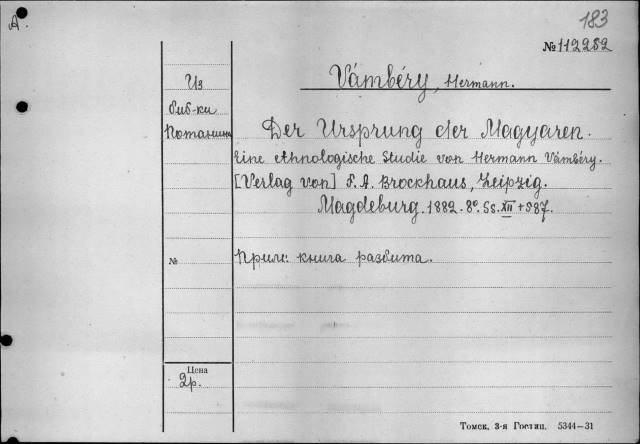 А.
183
№112282
Из
биб-ки
Потанина
Vámbéry, Hermann.
Der Ursprung der Magyaren.
Eine ethnologische Studie von Hermann Vámbéry.
[Verlag von] F. A. Brockhaus, Leipzig.
Magdeburg. 1882. 8°. SS. XII + 587.
№
Прим: книга разбита.
Цена
2р.
Томск, 3-я Гостип. 5344—31